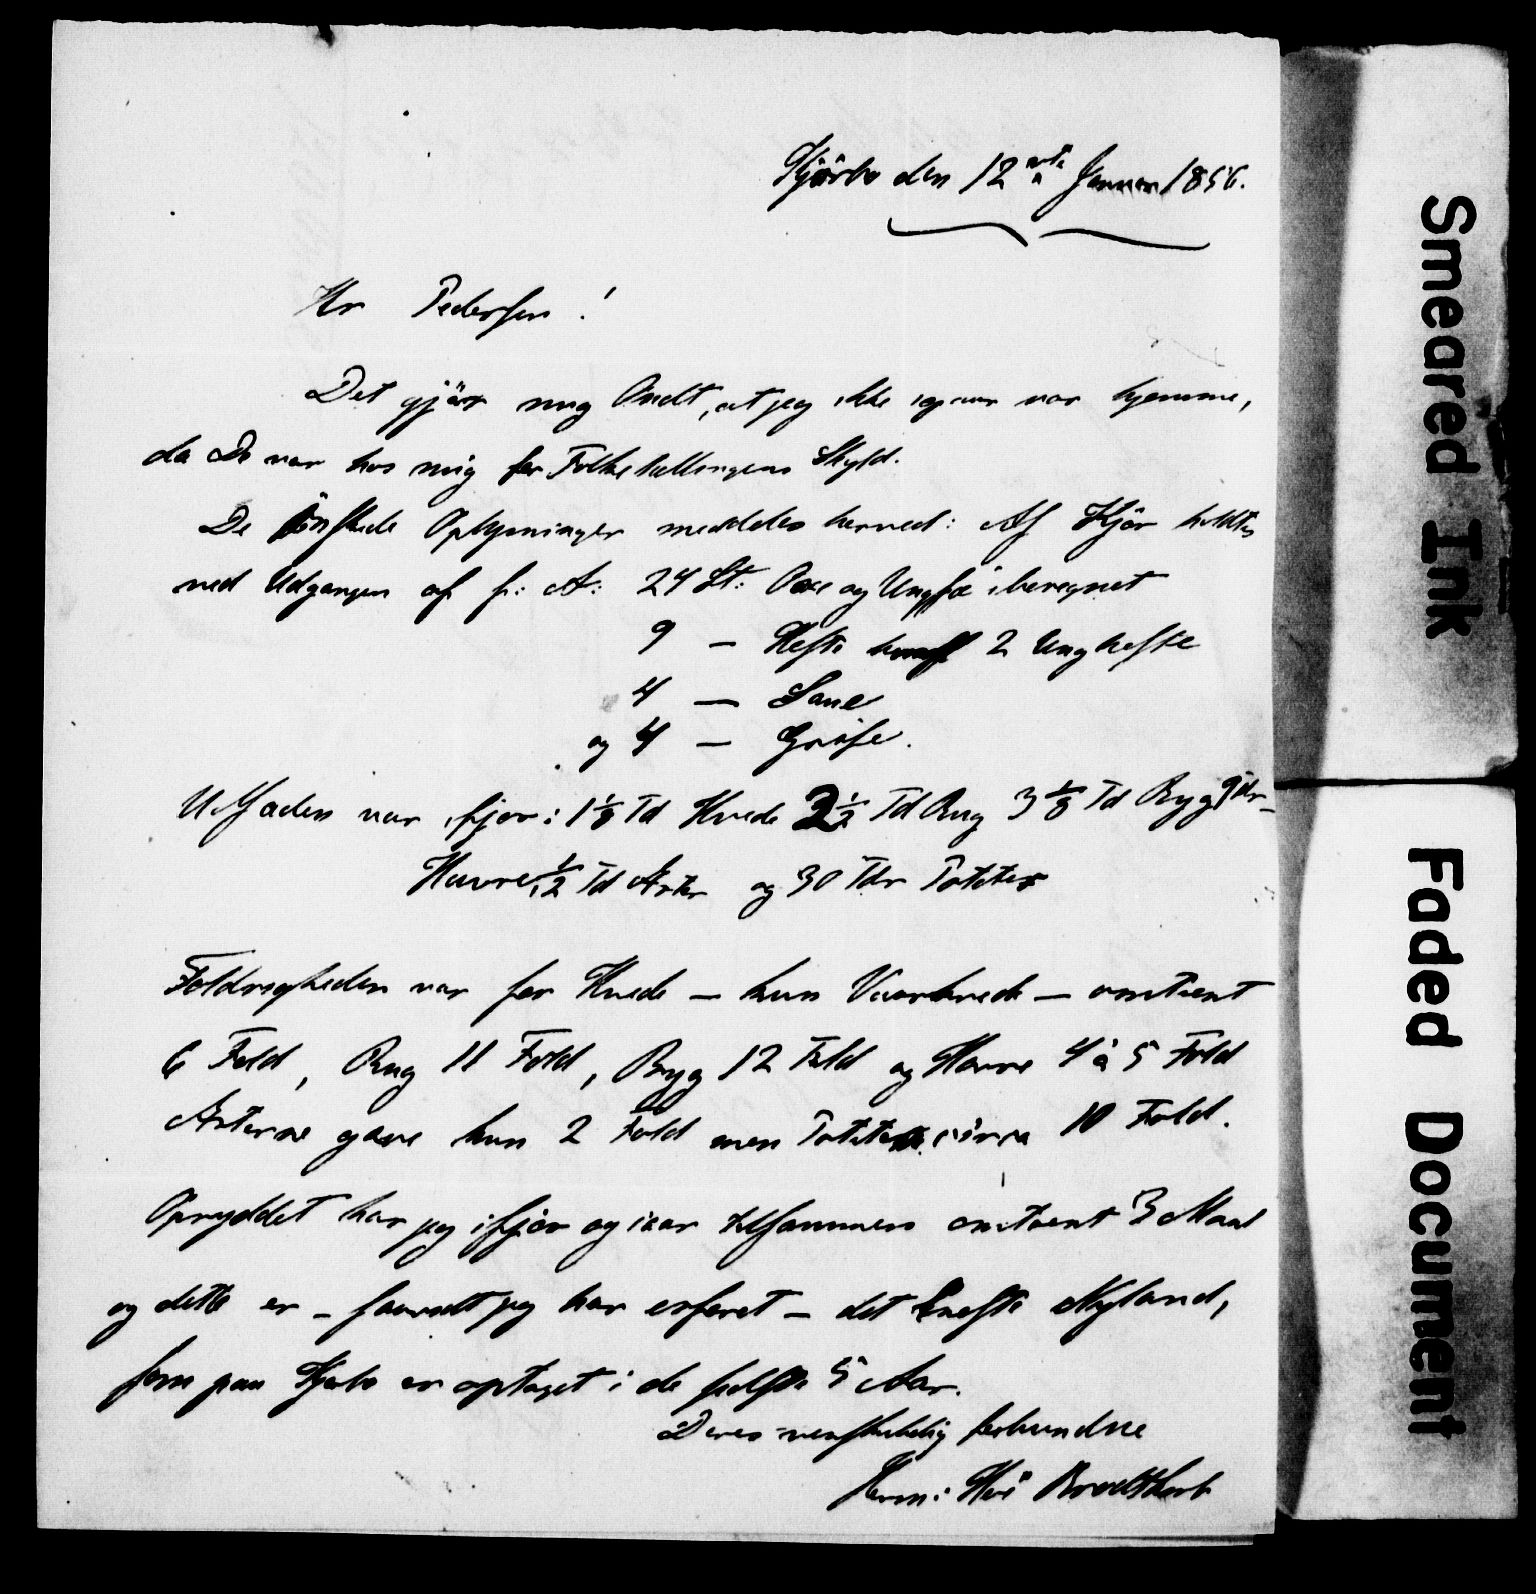 Kjørbo den 12te Januar 1856.
Hr Pedersen!
Det gjör mig Ondt, at jeg ikke igaar var hjemme,
da De var hos mig for Folketællingens Skyld.
De önskede Oplysninger meddeles herved: Af Kjör holdtes
ved Udgangen af f: A: 24 St: Oxe og Ungfæ iberegnet
9 — Heste hvoraf 2 Ungheste
4 — Sauer
og 4 — Grise.
Udsæden var ifjor: 1 1/8 Td Hvede 3 1/2 Td Rug 3 1/8 Td Byg 9 Tdr
Havre, 1/2 Td Ærter og 30 Tdr Poteter
Foldrigheden var for Hvede — kun Vaarhvede — omtrent
6 Fold, Rug 11 Fold, Byg 12 Fold og Havre 4 à 5 Fold
Ærterne gave kun 2 Fold men Poteter circa 10 Fold.
Opryddet har jeg ifjor og iaar tilsammen omtrent 3 Maal
og dette er — saavidt jeg har erfaret — det Eneste Nyland,
som paa Kjørbo er optaget i de sidste 5 Aar.
Deres venskabelig forbundne
Herm: Bredt
Smeared Ink
Faded Document